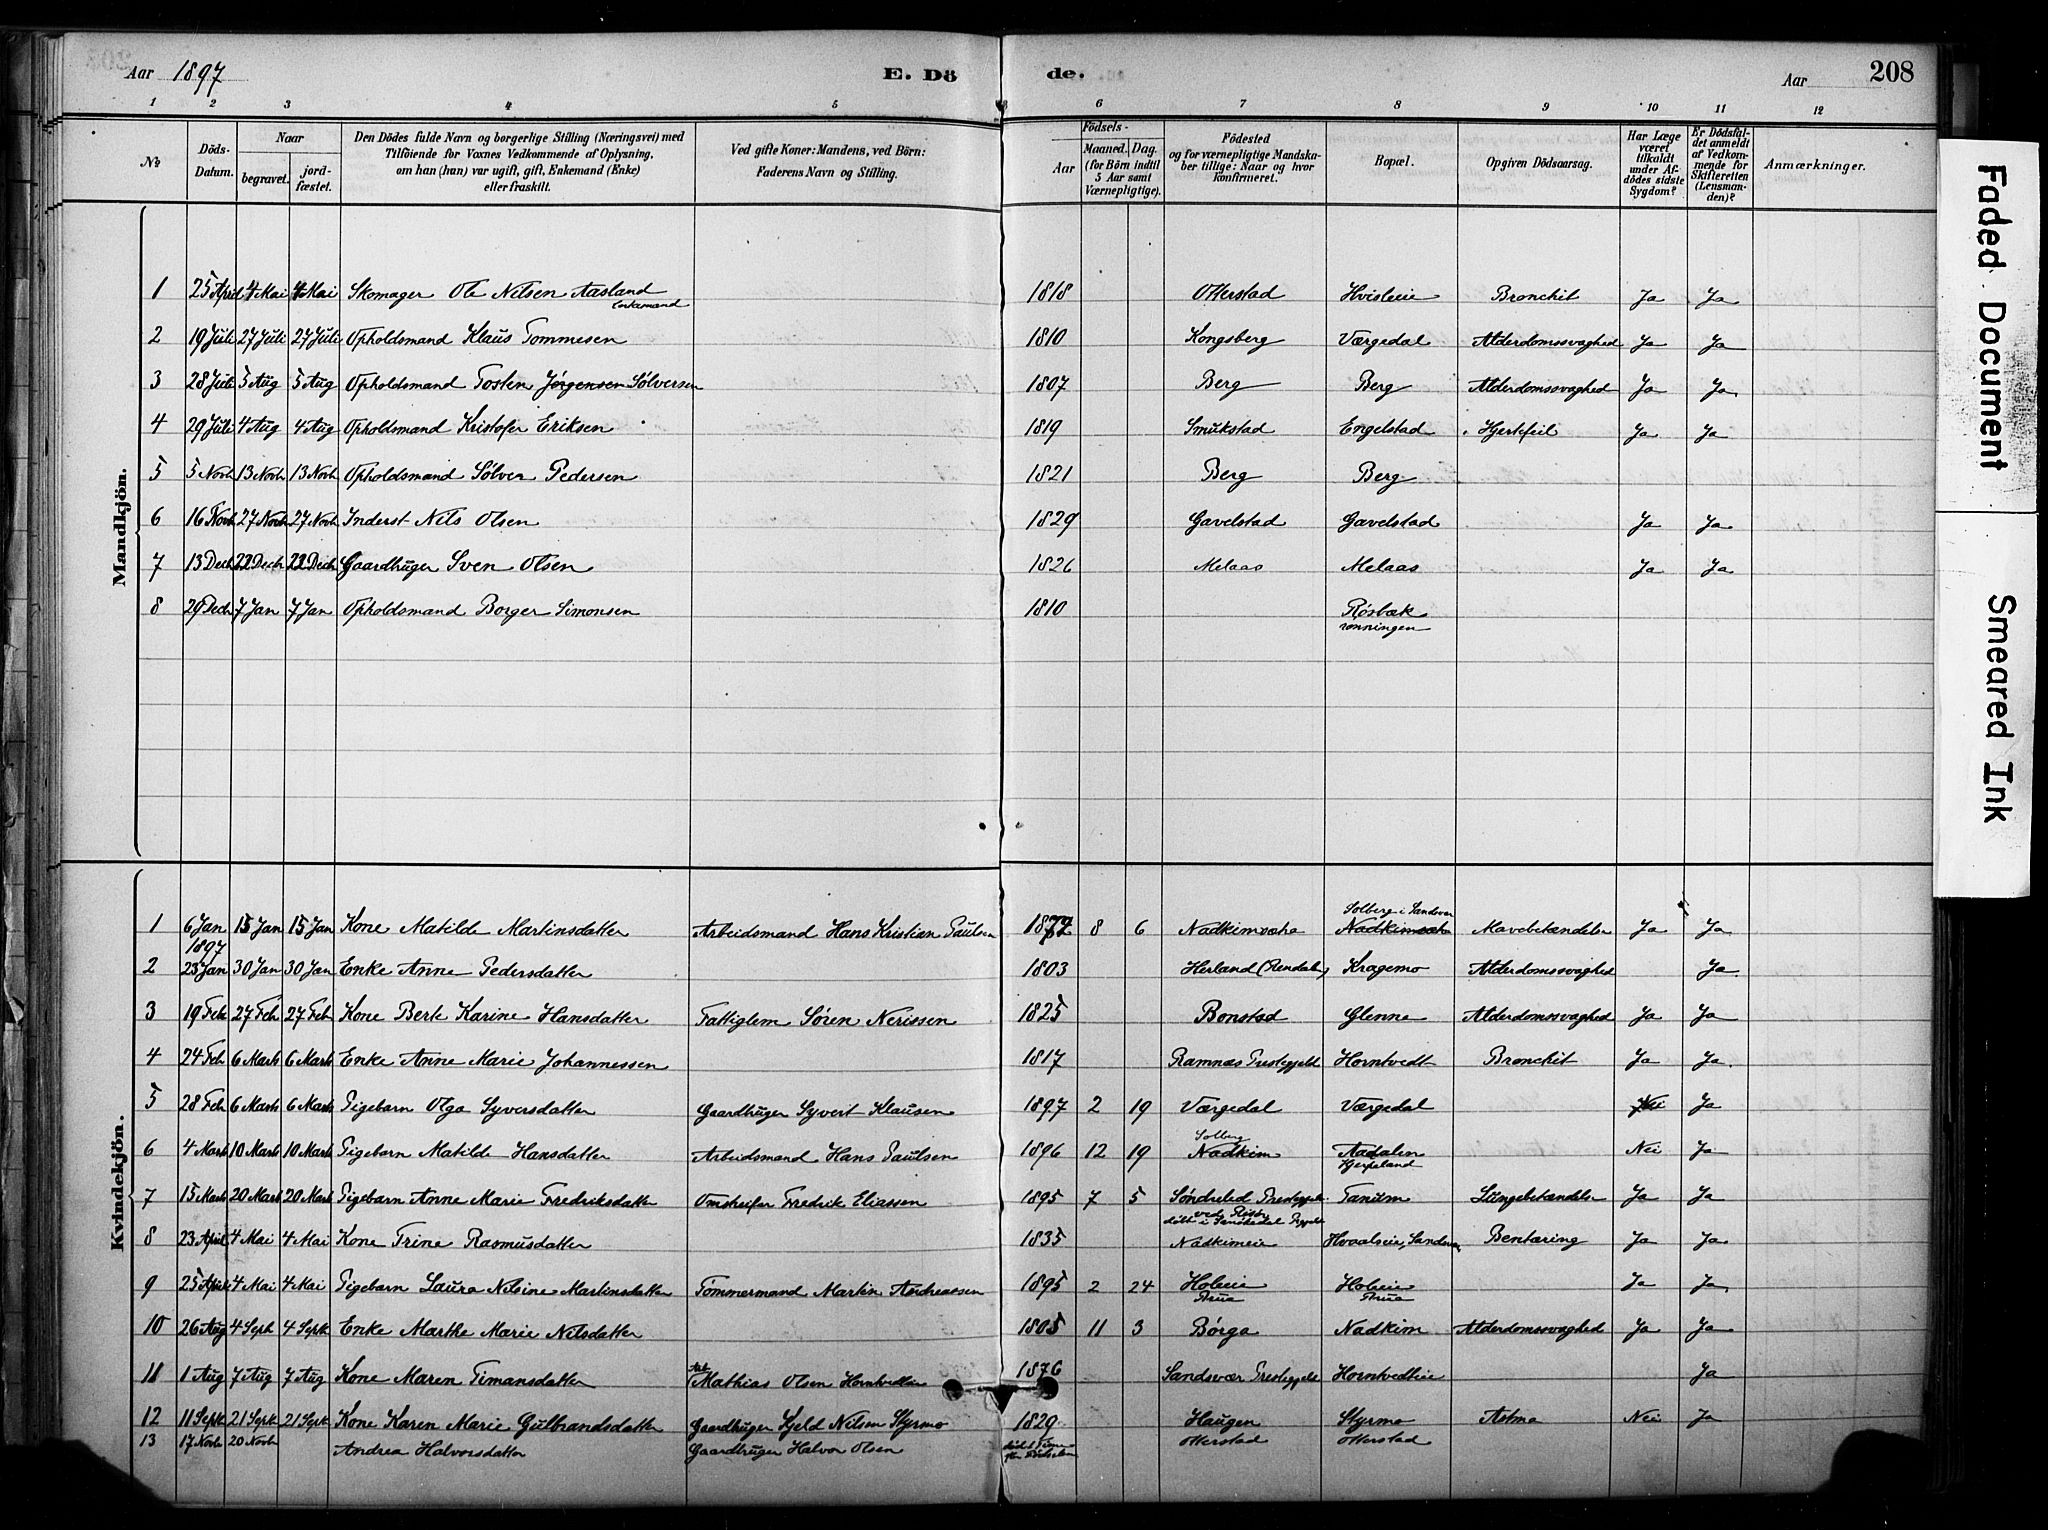 Aar 1897 E. Dö de. Aar 208
1 2 3 4 5 6 7 8 9 10 11 12
No Döds-Datum. Naar begravet. jord-fæstet. Den Dödes fulde Navn og borgerlige Stilling (Næringsvei) med Tilföiende for Voxnes Vedkommende af Oplysning, om han (hun) var ugift, gift, Enkemand (Enke) eller fraskilt. Ved gifte Koner: Mandens, ved Börn: Faderens Navn og Stilling. Födsels- Aar Maaned. Dag. (for Börn indtil 5 Aar samt Værnepligtige). Födested og for værnepligtige Mandska-ber tillige: Naar og hvor konfirmeret. Bopæl. Opgiven Dödsaarsag. Har Læge været tilkaldt under Af-dödes sidste Sygdom? Er Dödsfal-det anmeldt af Vedkom-mende for Skifteretten (Lensman-den)? Anmærkninger.
Mandkjön.
1 25 April 4 Mai 4 Mai Skomager Ole Nilsen Aasland Enkemand 1818 Otterstad Hvisleie Bronchit Ja Ja
2 19 Juli 27 Juli 27 Juli Opholdsmand Klaus Tommesen 1810 Kongsberg Værgedal Alderdomssvaghed Ja Ja
3 28 Juli 5 Aug 5 Aug Opholdsmand Tosten Jørgensen Sølversen 1807 Berg Berg Alderdomssvaghed Ja Ja
4 29 Juli 4 Aug 4 Aug Opholdsmand Kristofer Eriksen 1819 Smukstad Engelstad Hjertefeil Ja Ja
5 5 Novb 13 Novb 13 Novb Opholdsmand Sølver Pedersen 1821 Berg Berg
6 16 Novb 27 Novb 27 Novb Inderst Nils Olsen 1829 Gavelstad Gavelstad Ja Ja
7 13 Decb 22 Decb 22 Decb Gaardbruger Sven Olsen 1826 Melaas Melaas Ja Ja
8 29 Decb 7 Jan 7 Jan Opholdsmand Borger Simonsen 1810 Røsbæk
rønningen
Kvindekjön.
Solberg i Sandsvær
1 6 Jan 15 Jan 15 Jan Kone Matilde Martinsdatter Arbeidsmand Hans Kristian Paulsen 1872 8 6 Nadkim Mavebetændelse Ja Ja
1897
2 23 Jan 30 Jan 30 Jan Enke Anne Pedersdatter 1803 Herland (Rendal) Kragemo Alderdomssvaghed Ja
3 19 Feb 27 Feb 27 Feb Kone Berte Karine Hansdatter Fattiglem Søren Nerissen 1825 Bonstad Glenne Alderdomssvaghed Ja Ja
4 24 Feb 6 Marts 6 Marts Enke Anne Marie Johannessen 1817 Ramnæs Prestegjeld Horntvedt Bronchit Ja Ja
5 28 Feb 6 Marts 6 Marts Pigebarn Olga Syversdatter Gaardbruger Syvert Klausen 1897 2 19 Værgedal Værgedal Nei Ja
Solberg
6 4 Marts 10 Marts 10 Marts Pigebarn Matilde Hansdatter Arbeidsmand Hans Paulsen 1896 12 19 Nadkim Aadalen Nei Ja
Hjerpeland
7 15 Marts 20 Marts 20 Marts Pigebarn Anne Marie Fredriksdatter Omstreifer Fredrik Eliassen 1895 7 5 Søndreled Prestegjeld Tanum Lungebetændelse Ja Ja
8 23 April 4 Mai 4 Mai Kone Trine Rasmusdatter 1835 Nadkimeie Hvaalseie, Sandsvær Bentæring Ja Ja
9 25 April 4 Mai 4 Mai Pigebarn Laura Nilsine Martinsdatter Tømmermand Martin Andreassen 1895 2 24 Holeie Holeie Ja Ja
10 26 Aug 4 Sept 4 Sept Enke Marthe Marie Nilsdatter 1805 11 3 Børge Nadkim Alderdomssvaghed Ja Ja
11 1 Aug 7 Aug 7 Aug Kone Maren Timansdatter Arb Mathias Olsen Horntvedteie 1876 Sandsvær Prestegjeld Horntvedteie Ja
12 11 Sept 21 Sept 21 Sept Kone Karen Marie Gulbrandsdatter Gaardbruger Kjeld Nilsen Styrmo 1829 Haugen Styrmo Astma Nei Ja
13 17 Novb 20 Novb Andrea Halvorsdatter Gaardbruger Halvor Olsen død 1 Time efter Fødselen Otterstad Otterstad
Faded Document
Smeared Ink